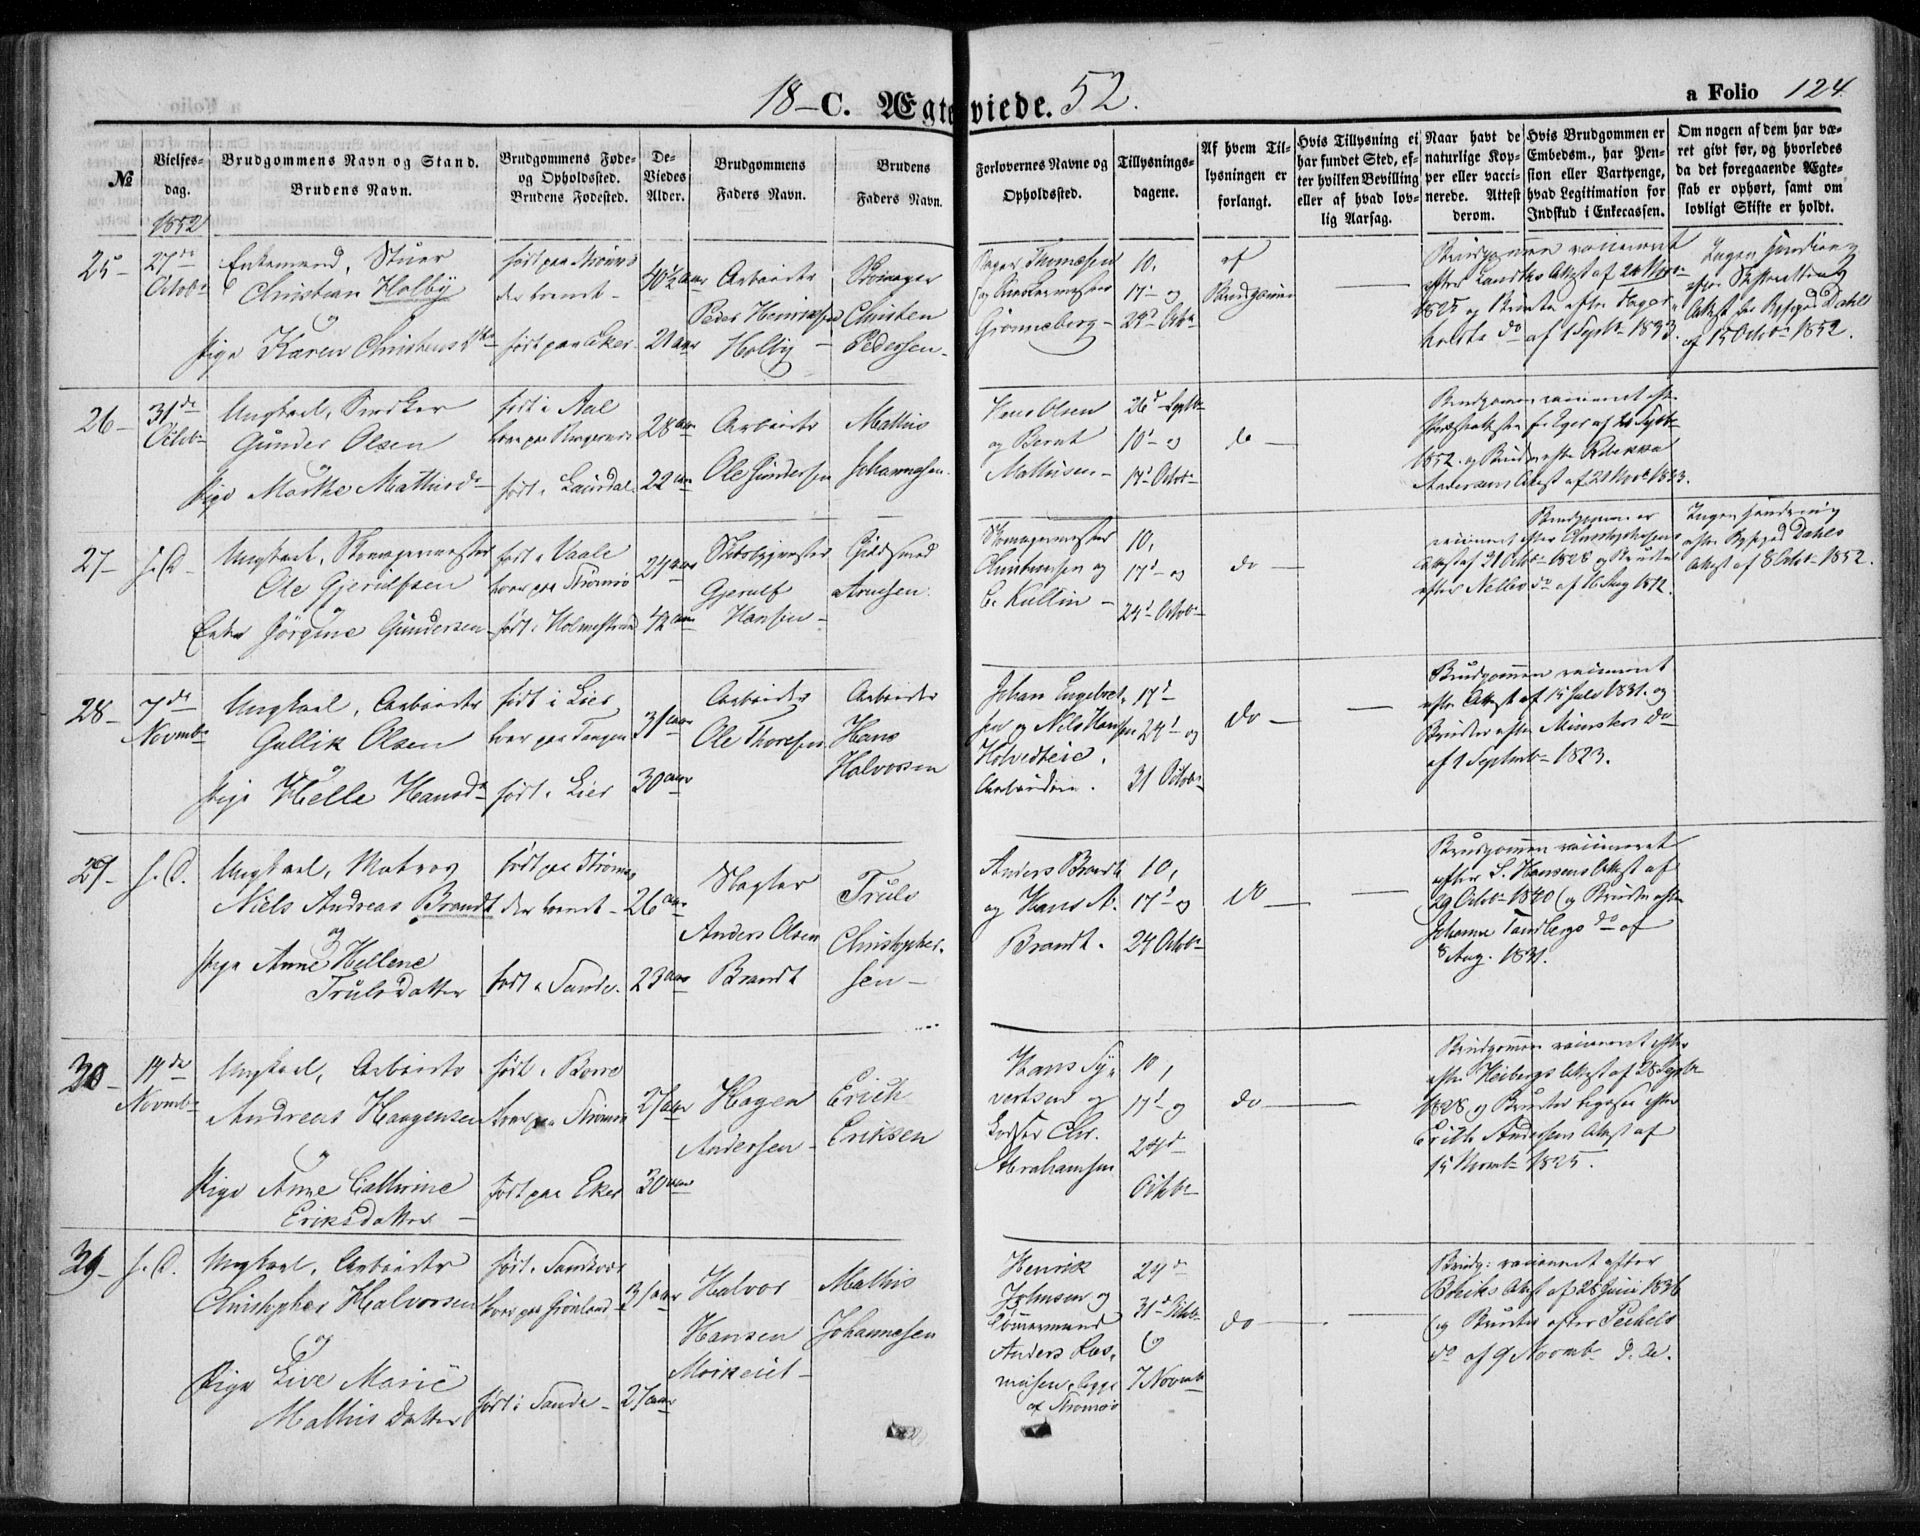 18 – C. Ægteviede. 52.
a Folio 124.
№
Vielses-
dag.
Brudgommens Navn og Stand.
Brudens Navn.
Brudgommens Føde-
og Opholdssted.
Brudens Fødested.
De-
Viedes
Alder.
Brudgommens
Faders Navn.
Brudens
Faders Navn.
Forlovernes Navne og
Opholdssted.
Tillysnings-
dagene.
Af hvem Til-
lysningen er
forlangt.
Hvis Tillysning ei
har fundet Sted, ef-
ter hvilken Bevilling
eller af hvad lov-
lig Aarsag.
Naar havt de
naturlige Kop-
per eller vacci-
nerede. Attest
derom.
Hvis Brudgommen er
Embedsm., har Pen-
sion eller Vartpenge,
hvad Legitimation for
Indskud i Enkecassen.
Om nogen af dem har væ-
ret gift før, og hvorledes
da det foregaaende Ægte-
skab er ophørt, samt om
lovligt Skifte er holdt.
1852
25 –
27de
Octob
Enkemand, Stuer
Christian Holby
og
Pige Karen Christensd
født paa Strømsø
der boende –
født paa Eker
40½ aar
21 aar
Arbeider
Peder Henriksen
Holby –
Christen
Pedersen –
Thomesen
og
Grønneberg –
10,
17 og
24d Octb
af
Brudgommen
Brudgommen vaccineret
efter Attest af
1825 og Bruden efter
do af 1 Septb 1833.
Ingen Hindring
efter Skifteretten
Attest fra Byfoged Dahls
af 15 Octob 1852.
26 –
31de
Octob
Ungkarl, Snedker
Gunder Olsen
Pige Marthe Mathisd
født i Aal
født i Laurdal
28 aar
22 aar
Arbeider
Ole Gundersen
Mathis
Johannesen
Hans Olsen
og Bernt
Mathisen –
26d Septb
10d og
17d Octob
do –
Brudgommen vaccineret efter
1852 og Bruden efter Rebekka
Andersens Attest af 21 Novb 1833.
27 –
s. D.
Ungkarl,
Ole Gjerulfsen
og
Enke Jørgine Gundersen
født i Vaale
boer paa Strømsø
født i Holmestrand
24 aar
42 aar
Skibsbygmester
Gjerulf
Hansen –
Guldsmed
Arnesen.
Christensen og
C. Kullin –
10,
17d og
24d Octob
do –
Brudgommen er
vaccineret efter
Attest af 31 Octb 1828 og Bruden
efter do af 16 Aug 1812.
Ingen Hindring
efter Byfoged Dahls
Attest af 8 Octob 1852.
28 –
7de
Novmb
Ungkarl, Arbeider
Gullik Olsen
og
Pige Helle Hansd
født i Lier
boer paa Tangen
født i Lier
31 aar
30 aar
Arbeider
Ole Thoresen
Arbeider
Hans
Halvorsen
Johan Engebret-
sen og Nils Hansen
Holvedteie,
Arbeidere.
17d
24d og
31 Octob
do –
Brudgommen vaccineret
efter Attest af 15 Juli 1831. og
Bruden efter Minsters do
af 1 Septemb 1823.
29 –
s. D.
Ungkarl, Matros
Niels Andreas Brandt
og
Pige Anne Hellene
Trulsdatter
født paa Strømsø
der boende –
født i Sande.
26 aar
23 aar
Slagter
Anders Olsen
Brandt
Truls
Christopher-
sen –
Anders Brandt
og Hans A.
Brandt.
10,
17d og
24 Octob
do –
Brudgommen vaccineret
efter L. Hansens Attest af
29 Octob 1840 og Bruden efter
Johanne Tandbergs do af
8 Aug. 1831.
30 –
14de
Novmb
Ungkarl, Arbeider
Andreas Haagensen
og
Pige Anne Cathrine
Eriksdatter –
født i Borre
boer paa Strømsø
født paa Eker
27 aar
30 aar
Hagen
Andersen –
Erich
Eriksen
Hans Sy-
vertsen og
Chr.
Abrahamsen
10,
17d og
24d
Octbr
do –
Brudgommen vaccineret efter
efter Heibergs Attest af 28 Septb
1828 og Bruden ligesaa efter
Erich Andersens Attest af
15 Novmb 1825.
31 –
s. D.
Ungkarl, Arbeider
Christopher Halvorsen
og
Pige Live Marie
Mathisdatter
født i Sandsvær
boer paa Grønland
født i Sande –
31 aar
27 aar
Halvor
Hansen
Moikeiet –
Mathis
Johannesen
Henrik
Johnsen og
Tømmermand
Anders Ras-
musen, begge
af Strømsø
24de
31d Octob
og
7 Novmb
do –
Brudg: vaccineret efter
Attest af 28 Juni 1836
og Bruden efter Peckels
do af 9 Novmb